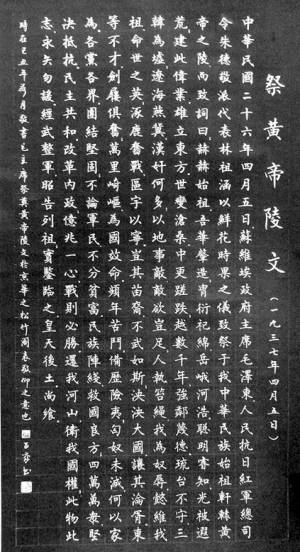 祭黄帝陵文
(一九三七年四月五日)
中華民國二十六年四月五日蘇維埃政府主席毛澤東人民抗日紅軍總司
令朱德敬派代表林祖涵以鮮花時果之儀致祭于我中華民族始祖軒轅黄
帝之陵而致詞曰赫赫始祖吾華肇造胄衍祀綿岳峨河浩聰明睿知光被遐
荒建此偉業雄立東方世變滄桑中更蹉跌越數千年強鄰蔑德琉台不守三
韓為墟遼海燕冀漢奸何多以地事敵敵欲豈足人執笞繩我為奴辱懿維我
祖命世之英涿鹿奮戰區宇以寧豈其苗裔不武如斯泱泱大國讓其淪胥東
等不才劍屨俱奮萬里崎嶇為國效命頻年苦鬥備歷險夷匈奴未滅何以家
為各黨各界團結堅固不論軍民不分貧富民族陣綫救國良方四萬萬衆堅
決抵抗民主共和改革内政億兆一心戰則必勝還我河山衛我國權此物此
志永矢勿諼經武整軍昭告列祖實鑒臨之皇天后土尚饗
時在己丑年荷月敬書毛主席祭奠黄帝陵文於京華之松竹閣表敬仰之意也